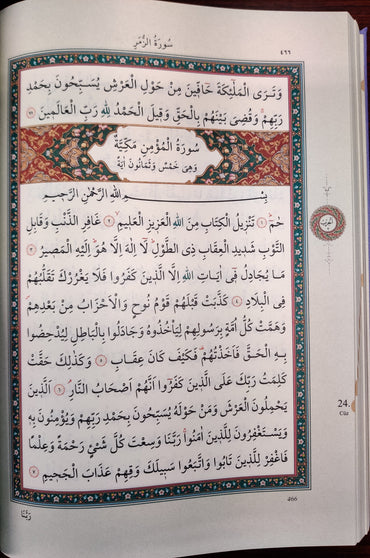 سُورَةُ الزُّمَرِ
٤٦٦
وَتَرَى الْمَلٰٓئِكَةَ حَٓافّٖينَ مِنْ حَوْلِ الْعَرْشِ يُسَبِّحُونَ بِحَمْدِ
رَبِّهِمْۚ وَقُضِىَ بَيْنَهُمْ بِالْحَقِّ وَقٖيلَ الْحَمْدُ لِلّٰهِ رَبِّ الْعَالَمٖينَ ﴿٧٥﴾
سُورَةُ الْمُؤْمِنِ مَكِّيَّةٌ
وَهِىَ خَمْسٌ وَثَمَانُونَ اٰيَةً
بِسْمِ اللّٰهِ الرَّحْمٰنِ الرَّحٖيمِ
حٰمٓۚ ﴿١﴾ تَنْزٖيلُ الْكِتَابِ مِنَ اللّٰهِ الْعَزٖيزِ الْعَلٖيمِۙ ﴿٢﴾ غَافِرِ الذَّنْبِ وَقَابِلِ
التَّوْبِ شَدٖيدِ الْعِقَابِ ذِى الطَّوْلِۜ لَٓا اِلٰهَ اِلَّا هُوَۜ اِلَيْهِ الْمَصٖيرُ ﴿٣﴾
مَا يُجَادِلُ فٖٓى اٰيَاتِ اللّٰهِ اِلَّا الَّذٖينَ كَفَرُوا فَلَا يَغْرُرْكَ تَقَلُّبُهُمْ
فِى الْبِلَادِ ﴿٤﴾ كَذَّبَتْ قَبْلَهُمْ قَوْمُ نُوحٍ وَالْاَحْزَابُ مِنْ بَعْدِهِمْ
وَهَمَّتْ كُلُّ اُمَّةٍ بِرَسُولِهِمْ لِيَاْخُذُوهُ وَجَادَلُوا بِالْبَاطِلِ لِيُدْحِضُوا
بِهِ الْحَقَّ فَاَخَذْتُهُمْ فَكَيْفَ كَانَ عِقَابِ ﴿٥﴾ وَكَذٰلِكَ حَقَّتْ
كَلِمَتُ رَبِّكَ عَلَى الَّذٖينَ كَفَرُٓوا اَنَّهُمْ اَصْحَابُ النَّارِۢ ﴿٦﴾ اَلَّذٖينَ
يَحْمِلُونَ الْعَرْشَ وَمَنْ حَوْلَهُ يُسَبِّحُونَ بِحَمْدِ رَبِّهِمْ وَيُؤْمِنُونَ بِهٖ
وَيَسْتَغْفِرُونَ لِلَّذٖينَ اٰمَنُواۚ رَبَّنَا وَسِعْتَ كُلَّ شَىْءٍ رَحْمَةً وَعِلْمًا
فَاغْفِرْ لِلَّذٖينَ تَابُوا وَاتَّبَعُوا سَبٖيلَكَ وَقِهِمْ عَذَابَ الْجَحٖيمِ ﴿٧﴾
24.
Cüz
466
رَبَّنَا